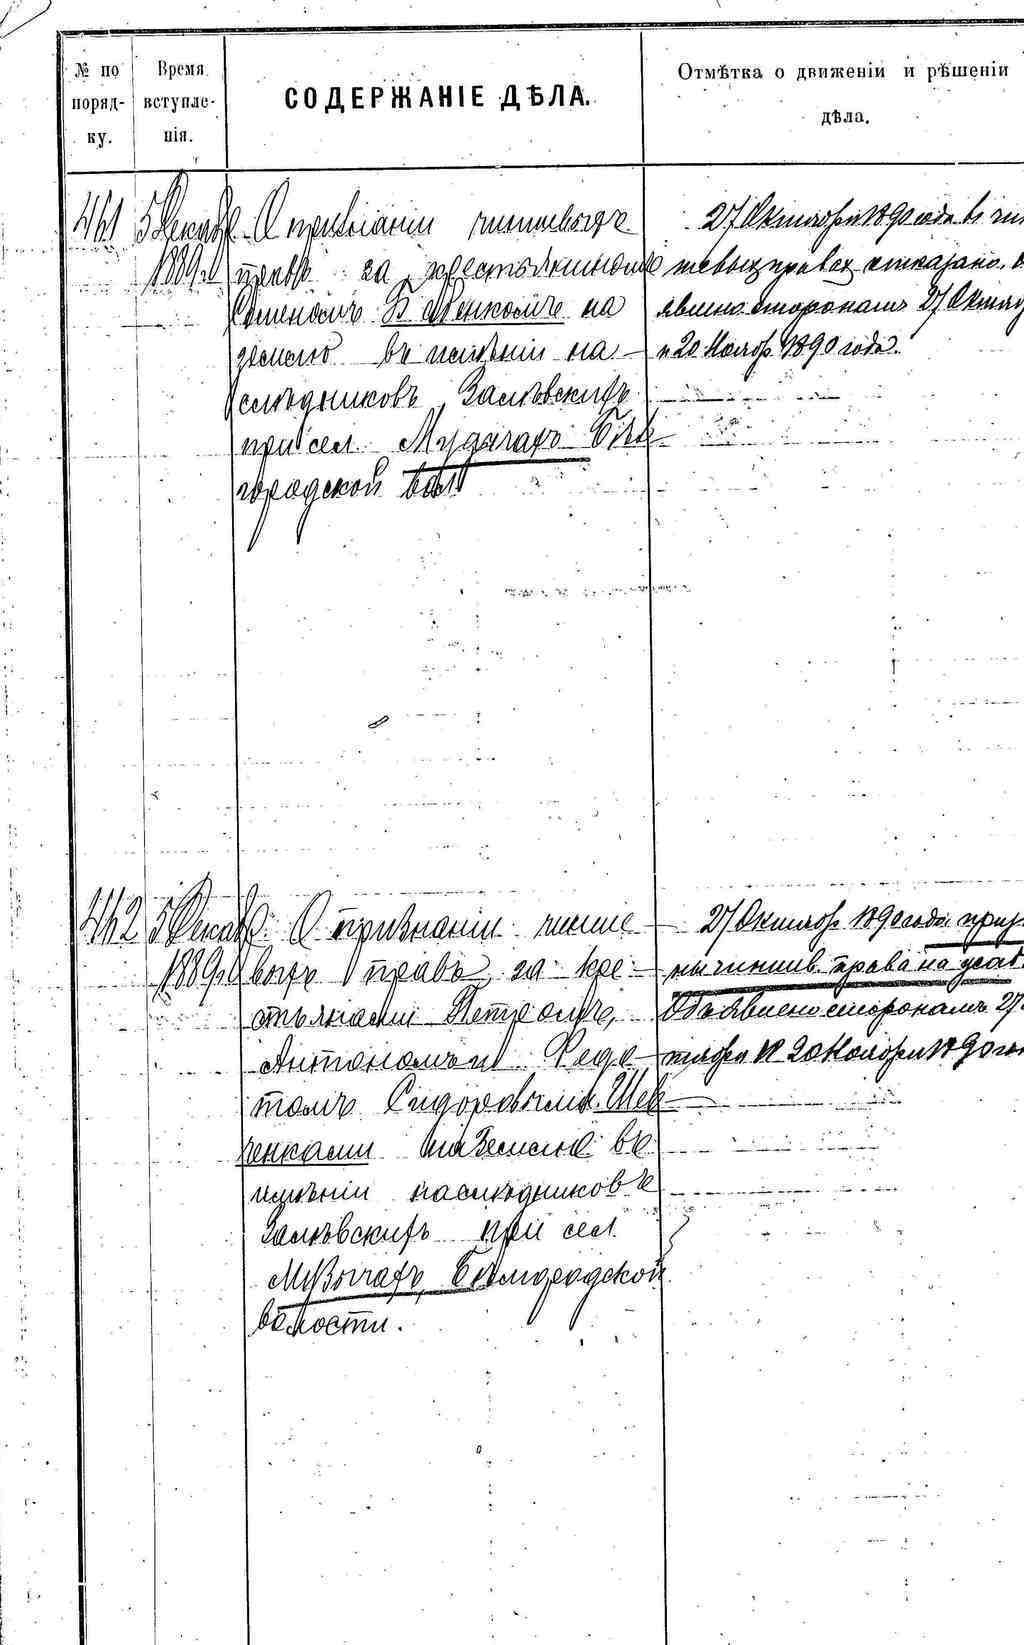 № по поряд- ку.
Время вступле- нія.
СОДЕРЖАНІЕ ДѢЛА.
Отмѣтка о движеніи и рѣшеніи
дѣла.
461
5 Декаб
1889 г
О признаніи чиншевыхъ
правъ за крестьяниномъ
Семеномъ на
землю въ имѣніи на-
слѣдниковъ Залѣвскихъ
при сел. Бѣл
городской вол
27 Октября 1890 года въ чин
шевыхъ правах отказано. О
явлено сторонамъ 27 Октяб
и 20 Нояб. 1890 года.
462
5 Декаб
1889 г
О признаніи чинше
выхъ правъ за кре-
стьянами Петромъ,
Антономъ и Федо
томъ Сидоровыми Шев
ченками на землю въ
имѣніи наслѣдниковъ
Залѣвскихъ при сел.
Бѣлгородской
волости.
27 Октяб. 1890 года приз
ны чиншев. права на усад.
Объявлено сторонамъ 27
тября и 20 Ноября 1890 го